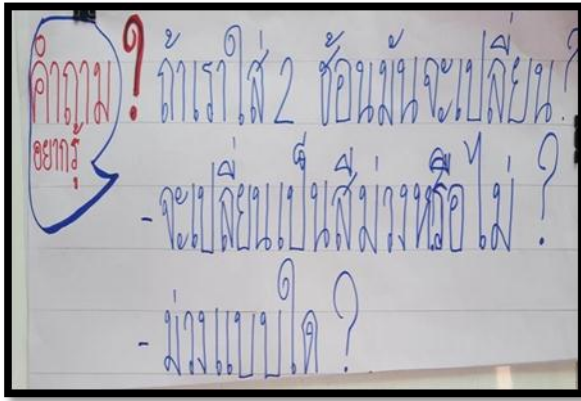 คำถาม
อยากรู้
? ถ้าเราใส่ 2 ช้อนมันจะเปลี่ยน?
- จะเปลี่ยนเป็นสีม่วงหรือไม่ ?
- ม่วงแบบใด ?